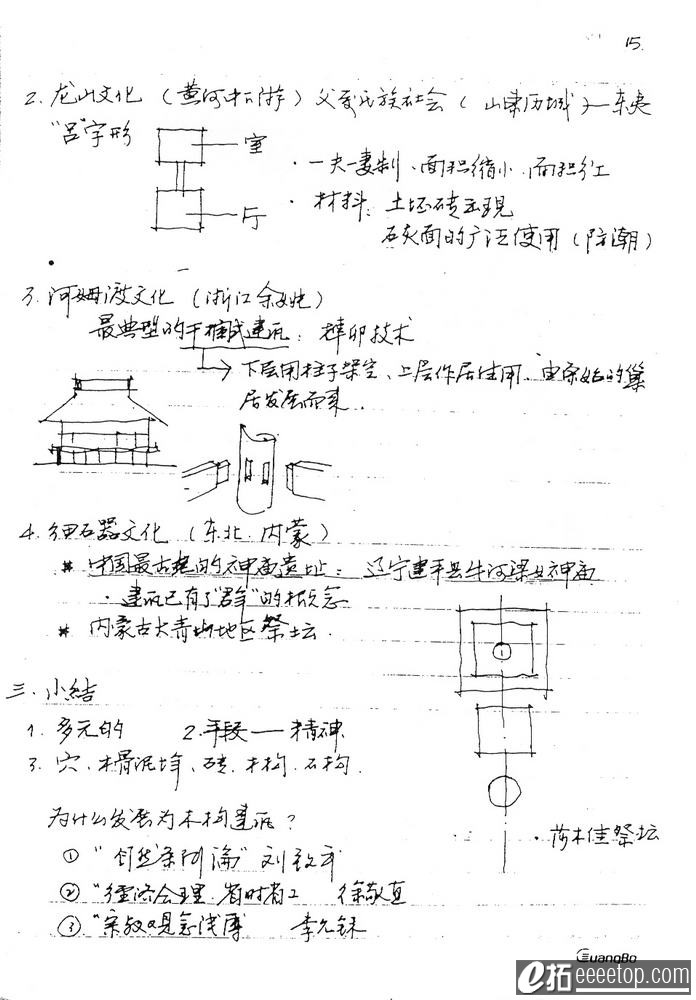 15.
2. 龙山文化 （黄河中下游）父系氏族社会（山东历城）— 东夷
"吕"字形
室
厅
· 一夫一妻制、面积缩小、面积分工
· 材料：土坯砖出现
石灰面的广泛使用（防潮）
3. 河姆渡文化（浙江余姚）
最典型的干栏式建筑：榫卯技术
下层用柱子架空、上层作居住用、由原始的巢
居发展而来.
4. 细石器文化（东北.内蒙）
* 中国最古老的神庙遗址：辽宁建平县牛河梁女神庙
· 建筑已有了"群"的概念
* 内蒙古大青山地区祭坛.
三. 小结
1. 多元的 2. 手段 — 精神
3. 穴.木骨泥墙、砖.木构.石构.
为什么发展为木构建筑？
① "自然条件论" 刘致平
② "经济合理.省时省工 徐敬直
③ "宗教观念淡薄 李允鉌
· 莎木佳祭坛
GuangBo
e拓 eeeetop.com